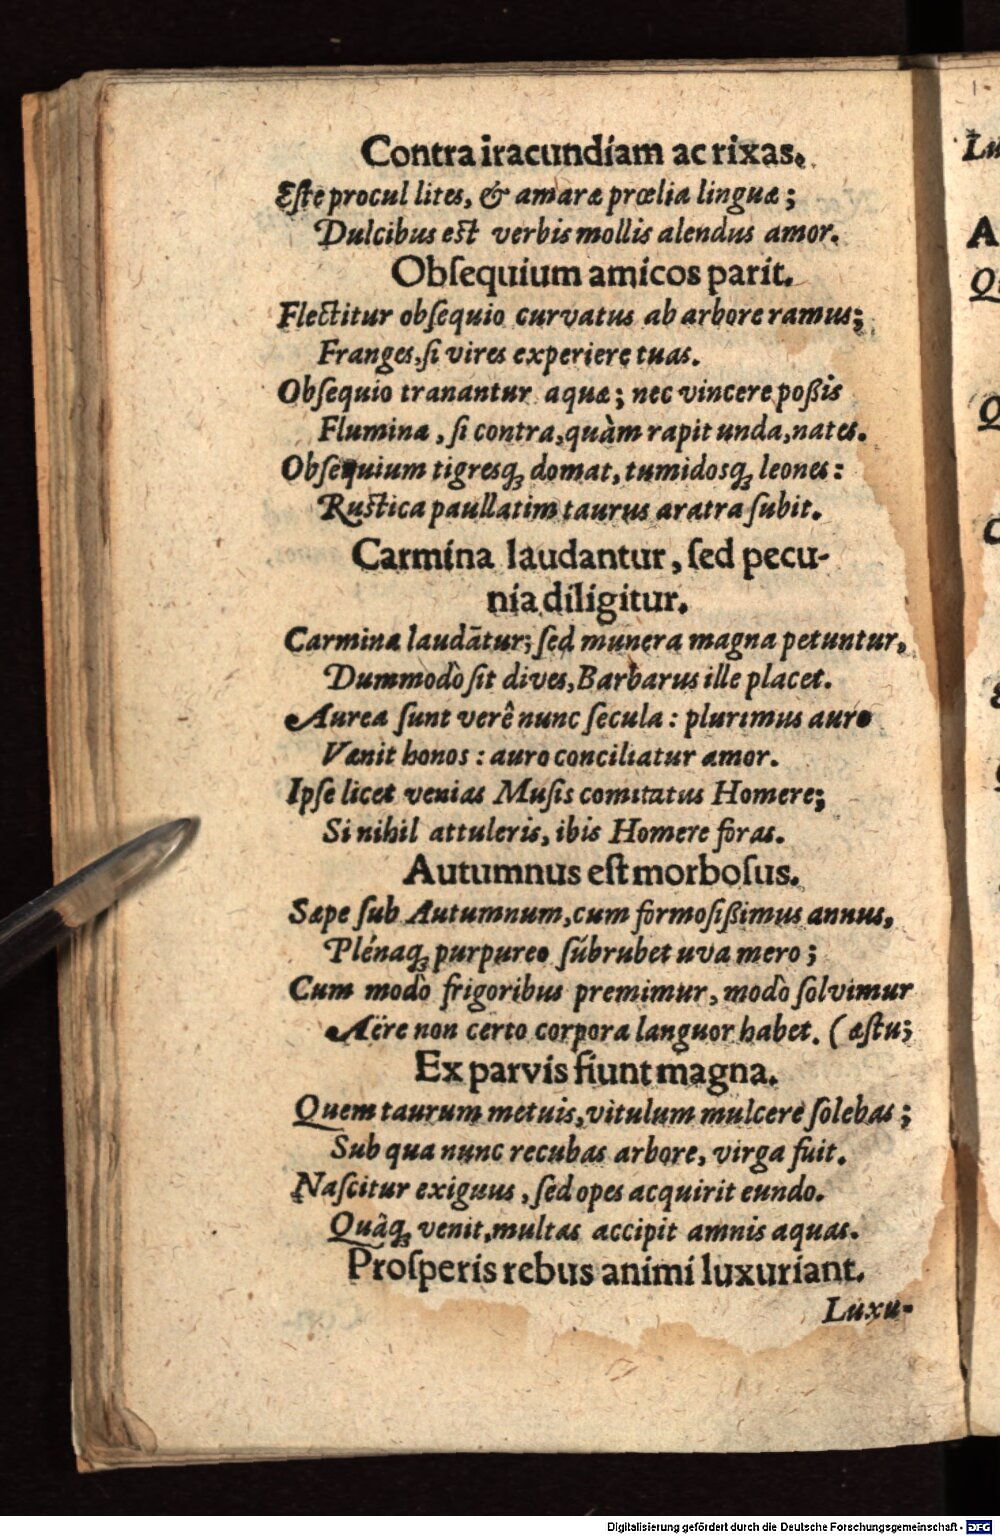 Contra iracundiam ac rixas.
Este procul lites, & amaræ prœlia linguæ;
Dulcibus est verbis mollis alendus amor.
Obſequium amicos parit.
Flectitur obſequio curvatus ab arbore ramus;
Franges, ſi vires experiere tuas.
Obſequio tranantur aquæ; nec vincere poßis
Flumina, ſi contra, quàm rapit unda, nates.
Obſequium tigresq́ domat, tumidosq́ leones:
Rustica paullatim taurus aratra ſubit.
Carmina laudantur, ſed pecu-
nia diligitur.
Carmina laudātur; ſed munera magna petuntur,
Dummodò ſit dives, Barbarus ille placet.
Aurea ſunt verê nunc ſecula: plurimus auro
Vænit honos: auro conciliatur amor.
Ipſe licet venias Muſis comitatus Homere;
Si nihil attuleris, ibis Homere foras.
Autumnus eſt morboſus.
Sæpe ſub Autumnum, cum formoſißimus annus,
Plénaq́ purpureo ſúbrubet uva mero;
Cum modò frigoribus premimur, modò ſolvimur
Aëre non certo corpora languor habet. (æſtu;
Ex parvis fiunt magna.
Quem taurum metuis, vitulum mulcere ſolebas;
Sub qua nunc recubas arbore, virga fuit.
Naſcitur exiguus, ſed opes acquirit eundo.
Quàq́ venit, multas accipit amnis aquas.
Proſperis rebus animi luxuriant.
Luxu-
Digitalisierung gefördert durch die Deutsche Forschungsgemeinschaft - DFG